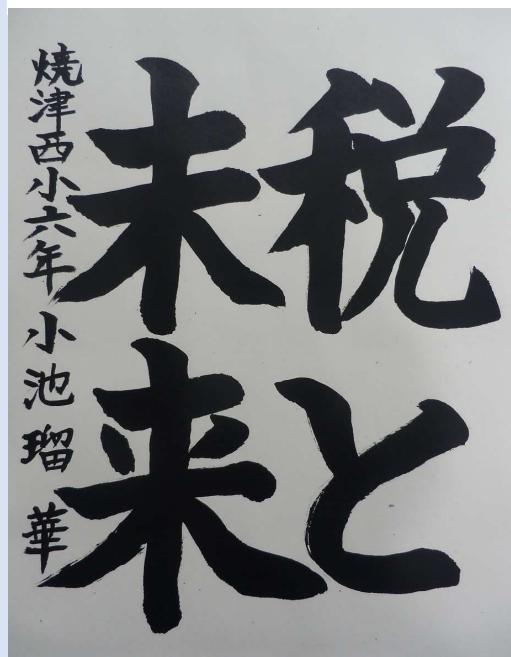 税と
未来
焼津西小六年 小池瑠華